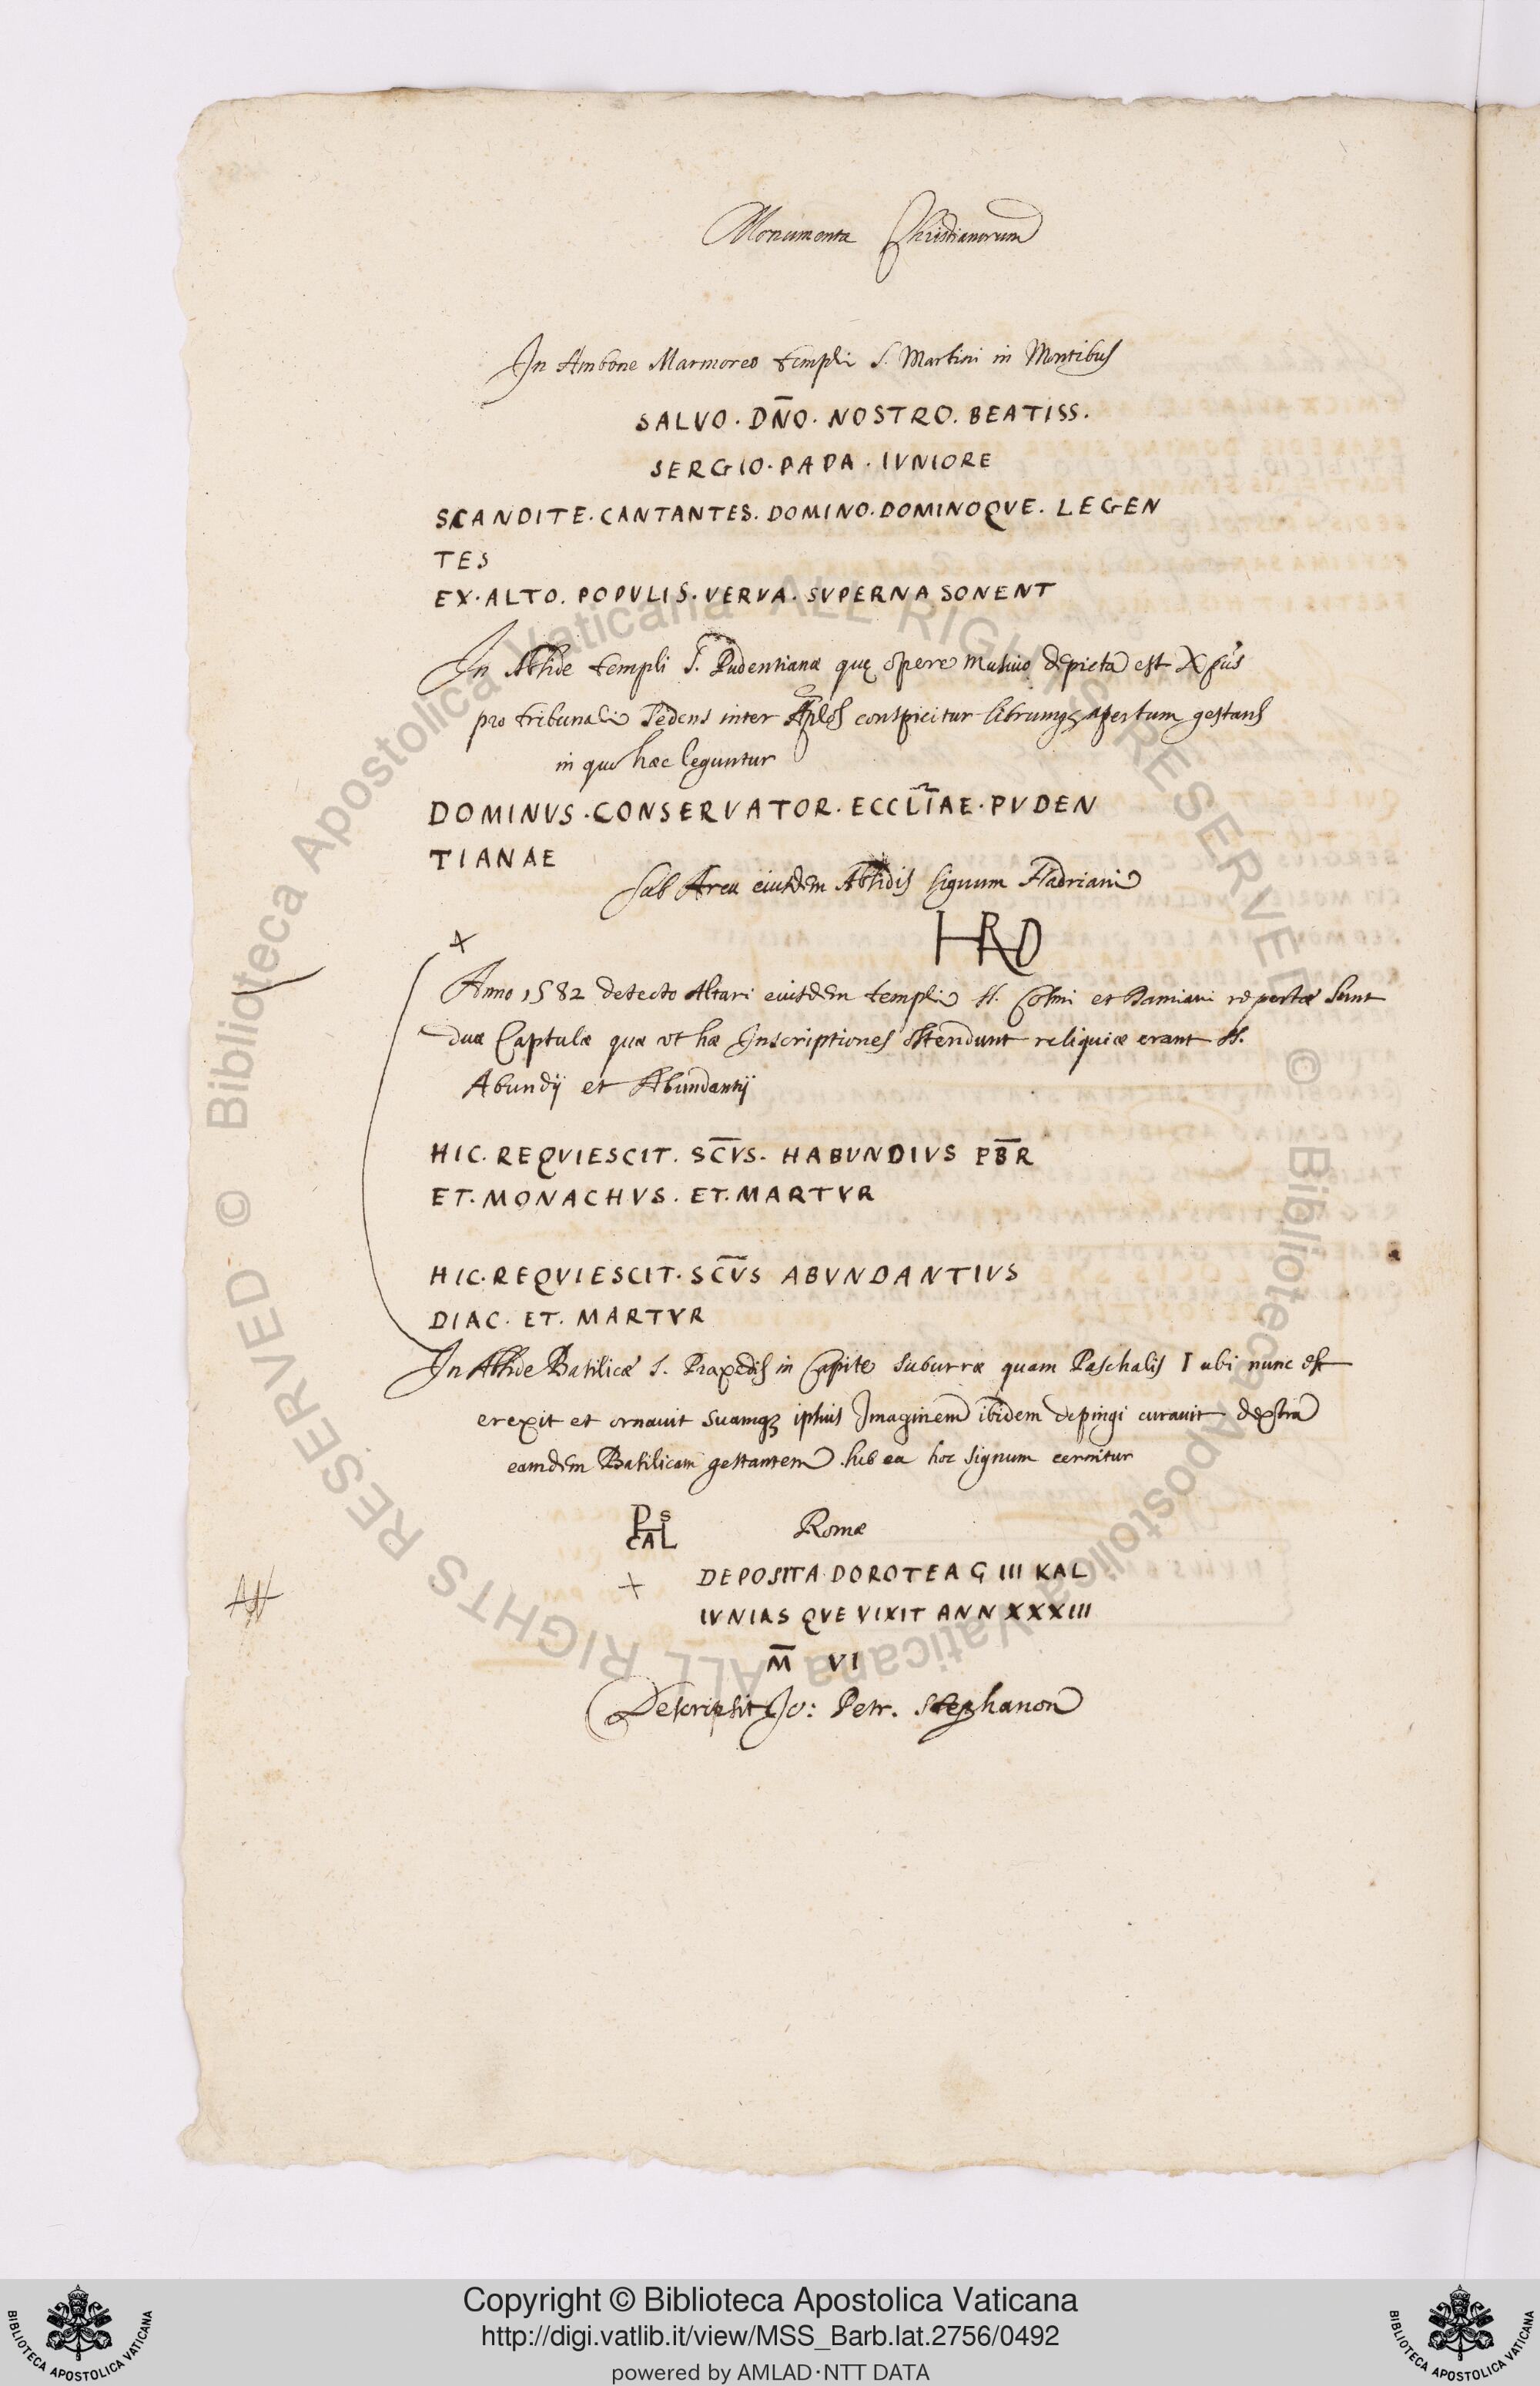 Monumenta Christianorum
In Ambone Marmoreo templi S. Martini in Montibus
SALVO. DÑO. NOSTRO. BEATISS.
SERGIO. PAPA. IVNIORE
SCANDITE. CANTANTES. DOMINO. DOMINOQVE. LEGEN
TES
EX. ALTO. POPVLIS. VERVA. SVPERNA SONENT
In Abside templi S. Pudentianæ quę opere musiuo depicta est Xp̃us
pro tribunali sedens inter Ap̃los conspicitur librumq; apertum gestans
in quo hæc leguntur
DOMINVS. CONSERVATOR. ECCLĨAE. PVDEN
TIANAE
Sub Arcu eiusdem Absidis signum Hadriani
HRD
+
Anno 1582 detecto Altari eiusdem templi SS. Cosmi et Damiani repertæ sunt
duæ Capsulæ quæ ut hæ Inscriptiones ostendunt reliquiæ erant SS.
Abundij et Abundantij
HIC. REQVIESCIT. SC̅VS. HABVNDIVS PB̅R
ET. MONACHVS. ET. MARTYR
HIC. REQVIESCIT. SC̅VS ABVNDANTIVS
DIAC. ET. MARTYR
In Abside Basilicæ S. Praxedis in Capite suburræ quam Paschalis I ubi nunc est
erexit et ornauit suamq; ipsius Imaginem ibidem depingi curauit dextra
eamdem Basilicam gestantem. sub ea hoc signum cernitur
P S
CAL
Romæ
+ DEPOSITA DOROTEA G III KAL
IVNIAS QVE VIXIT ANN XXXIII
M̅ VI
Descripsit Jo: Petr. Stephanon
© Biblioteca Apostolica Vaticana ALL RIGHTS RESERVED
© Biblioteca Apostolica Vaticana ALL RIGHTS RESERVED
Copyright © Biblioteca Apostolica Vaticana
http://digi.vatlib.it/view/MSS_Barb.lat.2756/0492
powered by AMLAD·NTT DATA
BIBLIOTECA APOSTOLICA VATICANA
BIBLIOTECA APOSTOLICA VATICANA